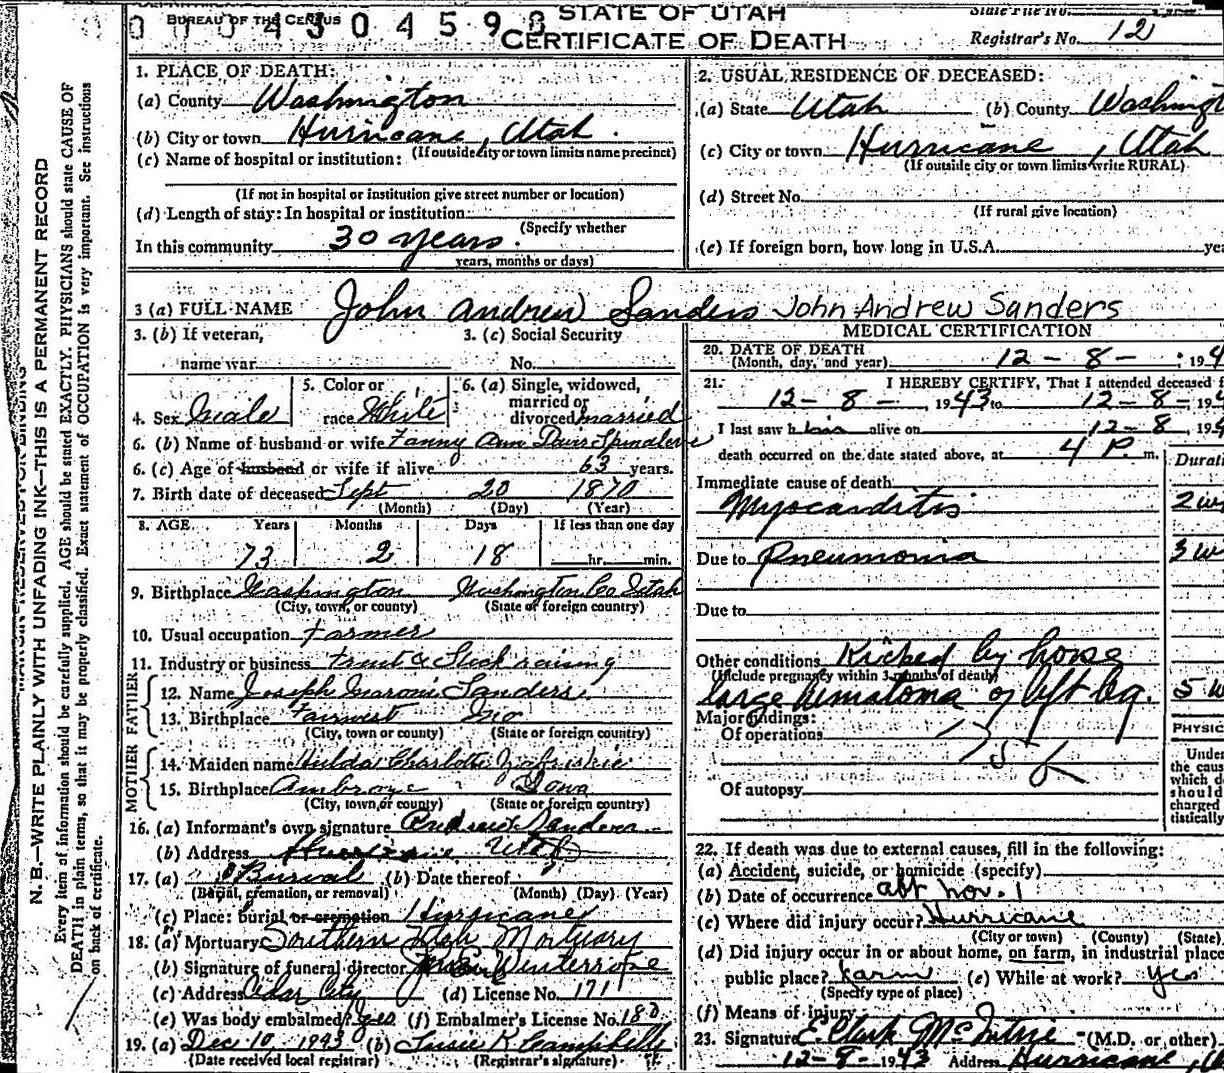 BUREAU OF THE CENSUS
0 0 0 4 3 0 4 5 9 8
STATE OF UTAH
CERTIFICATE OF DEATH
State File No.
Registrar's No. 12
N. B.—WRITE PLAINLY WITH UNFADING INK—THIS IS A PERMANENT RECORD
Every item of information should be carefully supplied. AGE should be stated EXACTLY. PHYSICIANS should state CAUSE OF
DEATH in plain terms, so that it may be properly classified. Exact statement of OCCUPATION is very important. See instructions
on back of certificate.
1. PLACE OF DEATH:
(a) County Washington
(b) City or town Hurricane, Utah.
(If outside city or town limits name precinct)
(c) Name of hospital or institution:
(If not in hospital or institution give street number or location)
(d) Length of stay: In hospital or institution
(Specify whether
In this community 30 years.
years, months or days)
2. USUAL RESIDENCE OF DECEASED:
(a) State Utah (b) County Washingt
(c) City or town Hurricane, Utah
(If outside city or town limits write RURAL)
(d) Street No.
(If rural give location)
(e) If foreign born, how long in U.S.A. ye
3 (a) FULL NAME John Andrew Sanders John Andrew Sanders
3. (b) If veteran, 3. (c) Social Security
name war No.
4. Sex Male 5. Color or race White 6. (a) Single, widowed, married or divorced married
6. (b) Name of husband or wife Fanny Ann Davis Spendlove
6. (c) Age of husband or wife if alive 63 years.
7. Birth date of deceased Sept 20 1870
(Month) (Day) (Year)
8. AGE Years Months Days If less than one day
73 2 18 hr. min.
9. Birthplace Washington Washington Co Utah
(City, town, or county) (State or foreign country)
10. Usual occupation Farmer
11. Industry or business Fruit & Stock raising
FATHER
12. Name Joseph Moroni Sanders
13. Birthplace Fairwest Mo
(City, town or county) (State or foreign country)
MOTHER
14. Maiden name Hulda Charlotte Zabriskie
15. Birthplace Iowa
(City, town, or county) (State or foreign country)
16. (a) Informant's own signature Sanders
(b) Address Hurricane Utah
17. (a) Burial (b) Date thereof
(Burial, cremation, or removal) (Month) (Day) (Year)
(c) Place: burial or cremation Hurricane
18. (a) Mortuary Southern Utah Mortuary
(b) Signature of funeral director Winterrose
(c) Address Cedar City (d) License No. 171
(e) Was body embalmed? yes (f) Embalmer's License No. 180
19. (a) Dec 10 1943 (b) Susie K Campbell
(Date received local registrar) (Registrar's signature)
MEDICAL CERTIFICATION
20. DATE OF DEATH 12 - 8 - ; 194
(Month, day, and year)
21. I HEREBY CERTIFY, That I attended deceased f
12 - 8 - , 1943 to 12 - 8 - , 194
I last saw h im alive on 12 - 8 , 194
death occurred on the date stated above, at 4 P. m.
Durati
Immediate cause of death
Myocarditis 2 w
Due to Pneumonia 3 w
Due to
Other conditions Kicked by horse
(Include pregnancy within 3 months of death)
large hematoma of left leg. 5 w
Major findings:
Of operations
Of autopsy
PHYSIC
Under
the caus
which d
should
charged
tistically
22. If death was due to external causes, fill in the following:
(a) Accident, suicide, or homicide (specify)
(b) Date of occurrence abt Nov. 1
(c) Where did injury occur? Hurricane
(City or town) (County) (State)
(d) Did injury occur in or about home, on farm, in industrial place
public place? farm (e) While at work? yes
(Specify type of place)
(f) Means of injury
23. Signature E. Clark McIntire (M.D. or other)
12-8-1943 Address Hurricane, U